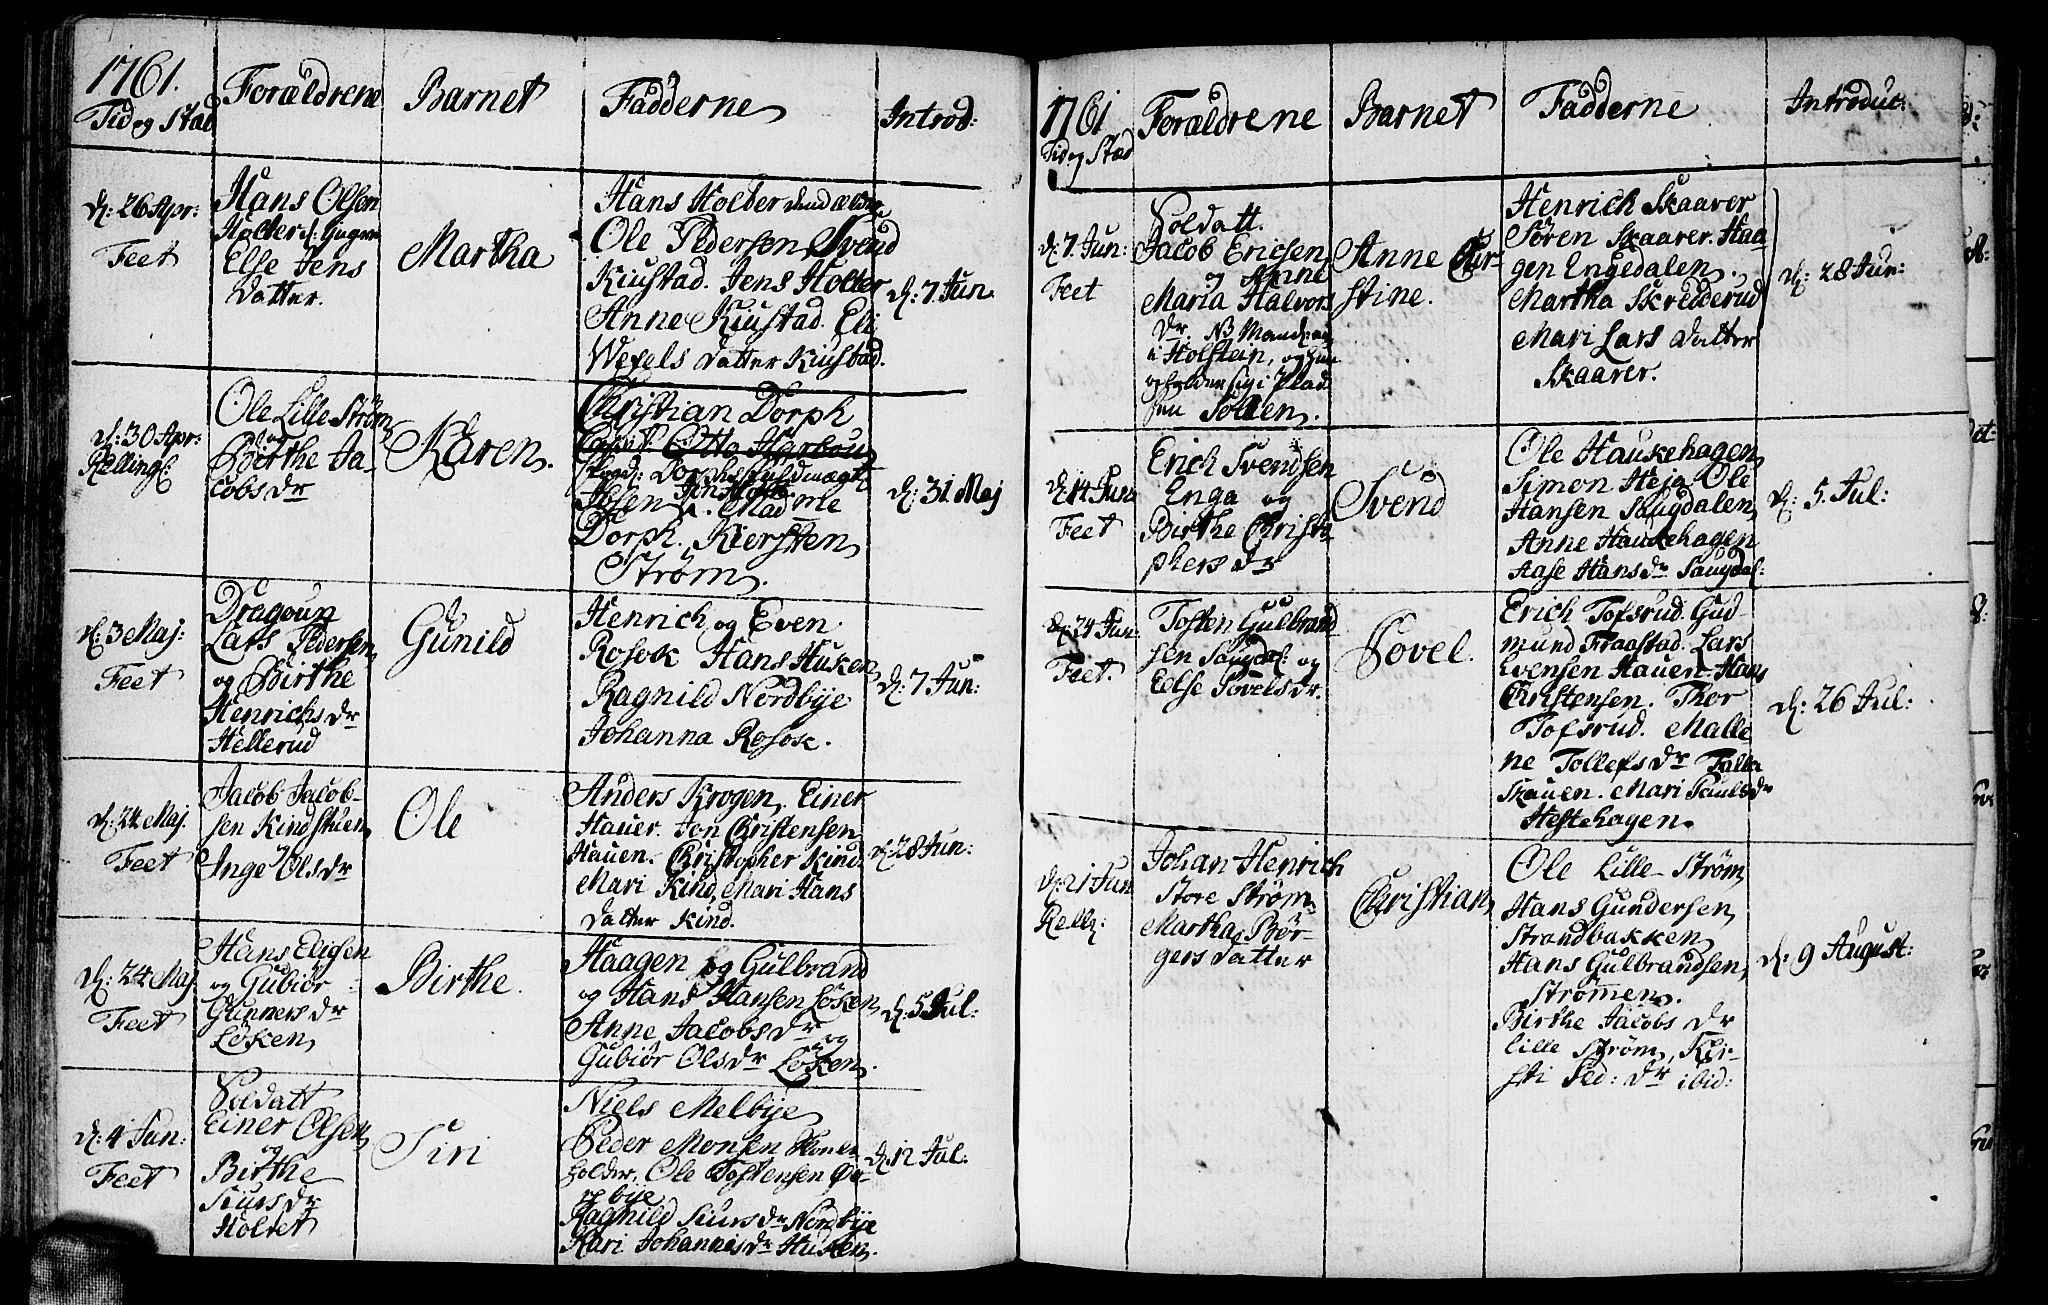 1761.
Tid og Stad
Forældrene
Barnet
Fadderne
Introd:
d: 26 Apr:
Feet
Hans Olsen
Holter
Else Jens
datter.
Martha
Hans Holter dend ældre
Ole Pedersen, Svend
Kiustad. Jens Holter
Anne Kiustad. Eli
Wefels datter Kiustad.
d: 7 Jun.
d: 30 Apr:
Relling:
Ole Lille Strøm
og
Birthe Ja-
cobs dr
Karen.
Christian Dorph
Otto
Dorphs fuldmægt
Mad me
Dorph. Kiersten
Strøm.
d: 31. Maj
d: 3 Maj:
Feet
Dragoun
Lars Pedersen
og Birthe
Henrichs dr
Hellerud
Gunild
Henrich og Even
Rosok Hans Husken
Ragnild Nordbye
Johanna Rosok.
d: 7 Jun:
d: 24 Maj.
Feet
Jacob Jacob-
sen Kindstuen
Inge Ols dr
Ole
Anders Krogen. Einer
Hauer. Jon Christensen
Hauen. Christopher Kind.
Mari Kind, Mari Hans
datter Kind.
d: 28 Jun:
d: 24 Maj
Feet
Hans Eligsen
og Gubiør
Gunners dr
Løken
Birthe.
Haagen og Gulbrand
og Hans Hansen Løken
Anne Jacobs dr og
Gubiør Ols dr Løken.
d: 5 Jul:
d: 4 Jun:
Feet
Soldatt
Einer Olsen
og
Birthe
Siurs dr
Holtet
Siri
Niels Melbye
Peder Monsen Skoele
holder, Ole Tostensen Øf-
bye
Ragnild Siurs dr Nordbye
Kari Johannis dr Husken.
d: 12 Jul:
1761
Tid og Stæd
Forældrene
Barnet
Fadderne
Introduc:
d: 7 Jun:
Feet
Soldatt.
Jacob Ericsen
og Anne
Maria Halvors
dr NB Manden er
i Holstein, og hun
opholder sig i Plad-
sen Tollen.
Anne Chri-
stine.
Henrich Skaarer
Søren Skaarer. Haa-
gen Engedalen.
Martha Skredderud
Mari Lars datter
Skaarer.
d: 28 Jun:
d: 14 Jun:
Feet
Erich Svendsen
Enga og
Birthe Christo-
phers dr
Svend
Ole Haukehagen
Simon Heja. Ole
Hansen Saugdalen
Anne Haukehagen
Aase Hans dr Saugdal:
d: 5. Jul:
d: 24 Jun:
Feet.
Tosten Gulbrand-
sen Saugdal: og
Eelse Povels dr.
Povel.
Erich Tofsrud. Gud-
mund Fraastad. Lars
Evensen Hauer. Hans
Christensen. Thor
Tofsrud. Malle-
ne Tollefs dr Falke
Skauen. Mari Pauls dr
Hestehagen.
d: 26 Jul:
d: 21 Jun
Relling:
Johan Henrich
Store Strøm
Martha Bør-
gers datter
Christian
Ole Lille-Strøm
Hans Gundersen
Strandbakken
Hans Gulbrandsen
Strømmen.
Birthe Jacobs dr
Lille Strøm, Kir-
sti Ped: dr ibid:
d: 9 August: